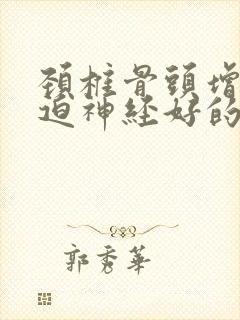 頚椎骨頭增
迫神経好的
郭秀華